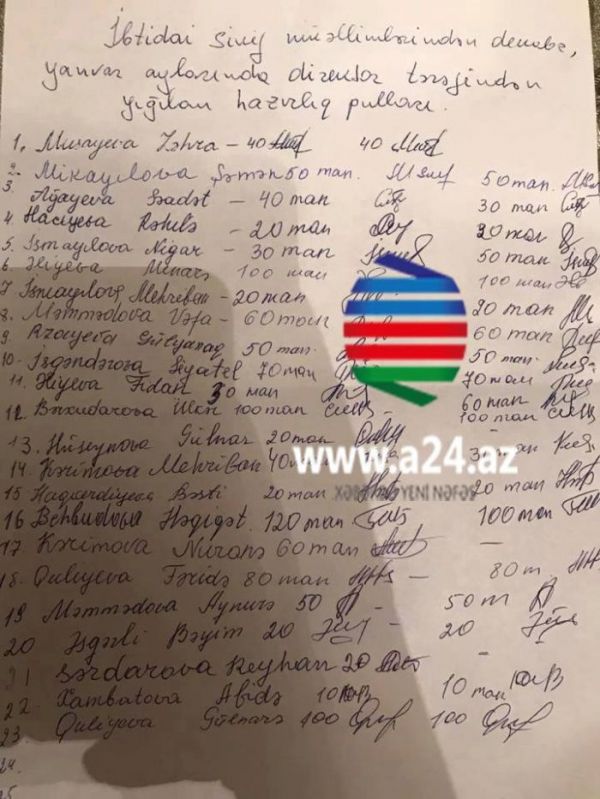 İbtidai Sinif müəllimlərindən dekabr,
yanvar aylarında direktor tərəfindən
yığılan hazırlıq pulları.
1. Murayeva Zəhra - 40 40
2. Mikayılova Şəmən 50 man. 50 man.
3. Ağayeva Səadət - 40 man 30 man
4. Hacıyeva Rəhilə - 20 man 20 man
5. İsmayılova Nigar - 30 man 50 man
6. Əliyeva Minarə 100 man 100 man
7. İsmayılova Mehriban - 20 man 20 man
8. Məmmədova Vəfa - 60 man 60 man
9. Rzayeva Gülyanaq 50 man. 50 man.
10. İsgəndərova Siyatel 70 man 70 man
11. Əliyeva Fidan 30 man 60 man
12. Baxudarova 100 man 100 man
13. Hüseynova Gülnar 20 man 30 man
www.a24.az
14. Kərimova Mehriban 40
XƏBƏRƏ YENİ NƏFƏS
15 Haqverdiyeva Bəsti 20 man 20 man
16 Behbudova Həqiqət 120 man 100 man
17 Kərimova Nuranə 60 man -
18. Quliyeva Fəridə 80 man - 80 m.
19 Məmmədova Aynurə 50 - 50 m
20 Əsgərli Bəyim 20 - 20
21 Sərdarova Reyhan 20 -
22. Xambatova Abidə 10 10 man
23 Quliyeva Gülnarə 100 100
24.
25